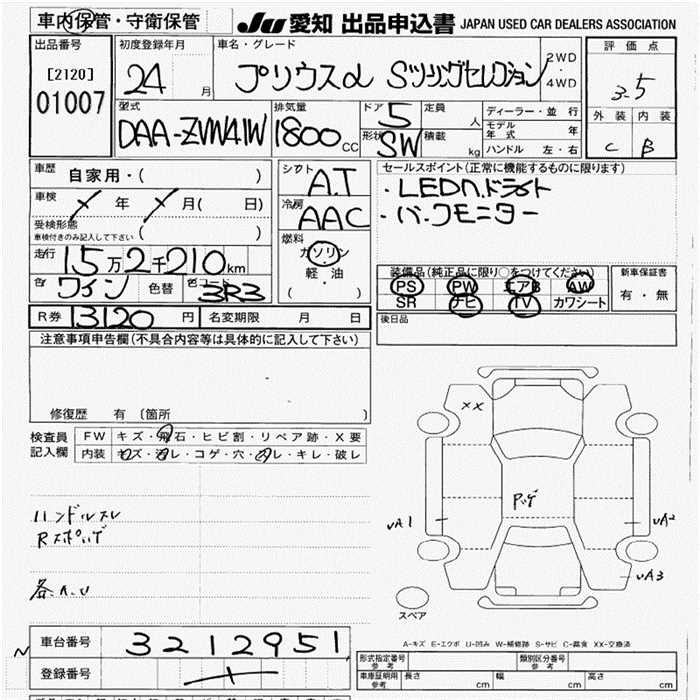 車内保管・守衛保管
JU 愛知 出品申込書 JAPAN USED CAR DEALERS ASSOCIATION
出品番号
[2120]
01007
初度登録年月
24 月
車名・グレード
プリウスα Sツーリングセレクション
2WD
・
4WD
評価点
3-5
外装 内装
C B
型式
DAA-ZVW41W
排気量
1800 cc
ドア 5
形状 SW
定員 人
積載 kg
ディーラー・並行
モデル年式 年
ハンドル 左・右
車歴 自家用・( )
車検 年 月( 日)
受検形態
車検付きのみ記入して下さい ( )
走行 15万2千210km
色 ワイン 色替 色コード 3R3
シフト A.T
冷房 AAC
燃料
ガソリン
軽・油
( )
セールスポイント(正常に機能するものに限ります)
・LEDヘッドライト
・バックモニター
装備品(純正品に限り○をつけてください)
PS PW エアB AW
SR ナビ TV カワシート
新車保証書
有・無
後日品
R券 13120 円 名変期限 月 日
注意事項申告欄(不具合内容等は具体的に記入して下さい)
修復歴 有 〔箇所 〕
検査員記入欄
FW キズ・飛石・ヒビ割・リペア跡・X要
内装 キズ・汚レ・コゲ・穴・スレ・キレ・破レ
ハンドルスレ
Rスポ
各A.U
XX
UA1
UA2
UA3
スペア
A-キズ E-エクボ U-凹み W-補修跡 S-サビ C-腐食 XX-交換済
車台番号 3212951
登録番号
形式指定番号
参考
類別区分番号
参考
車庫証明用
参考
長さ cm 幅 cm 高さ cm